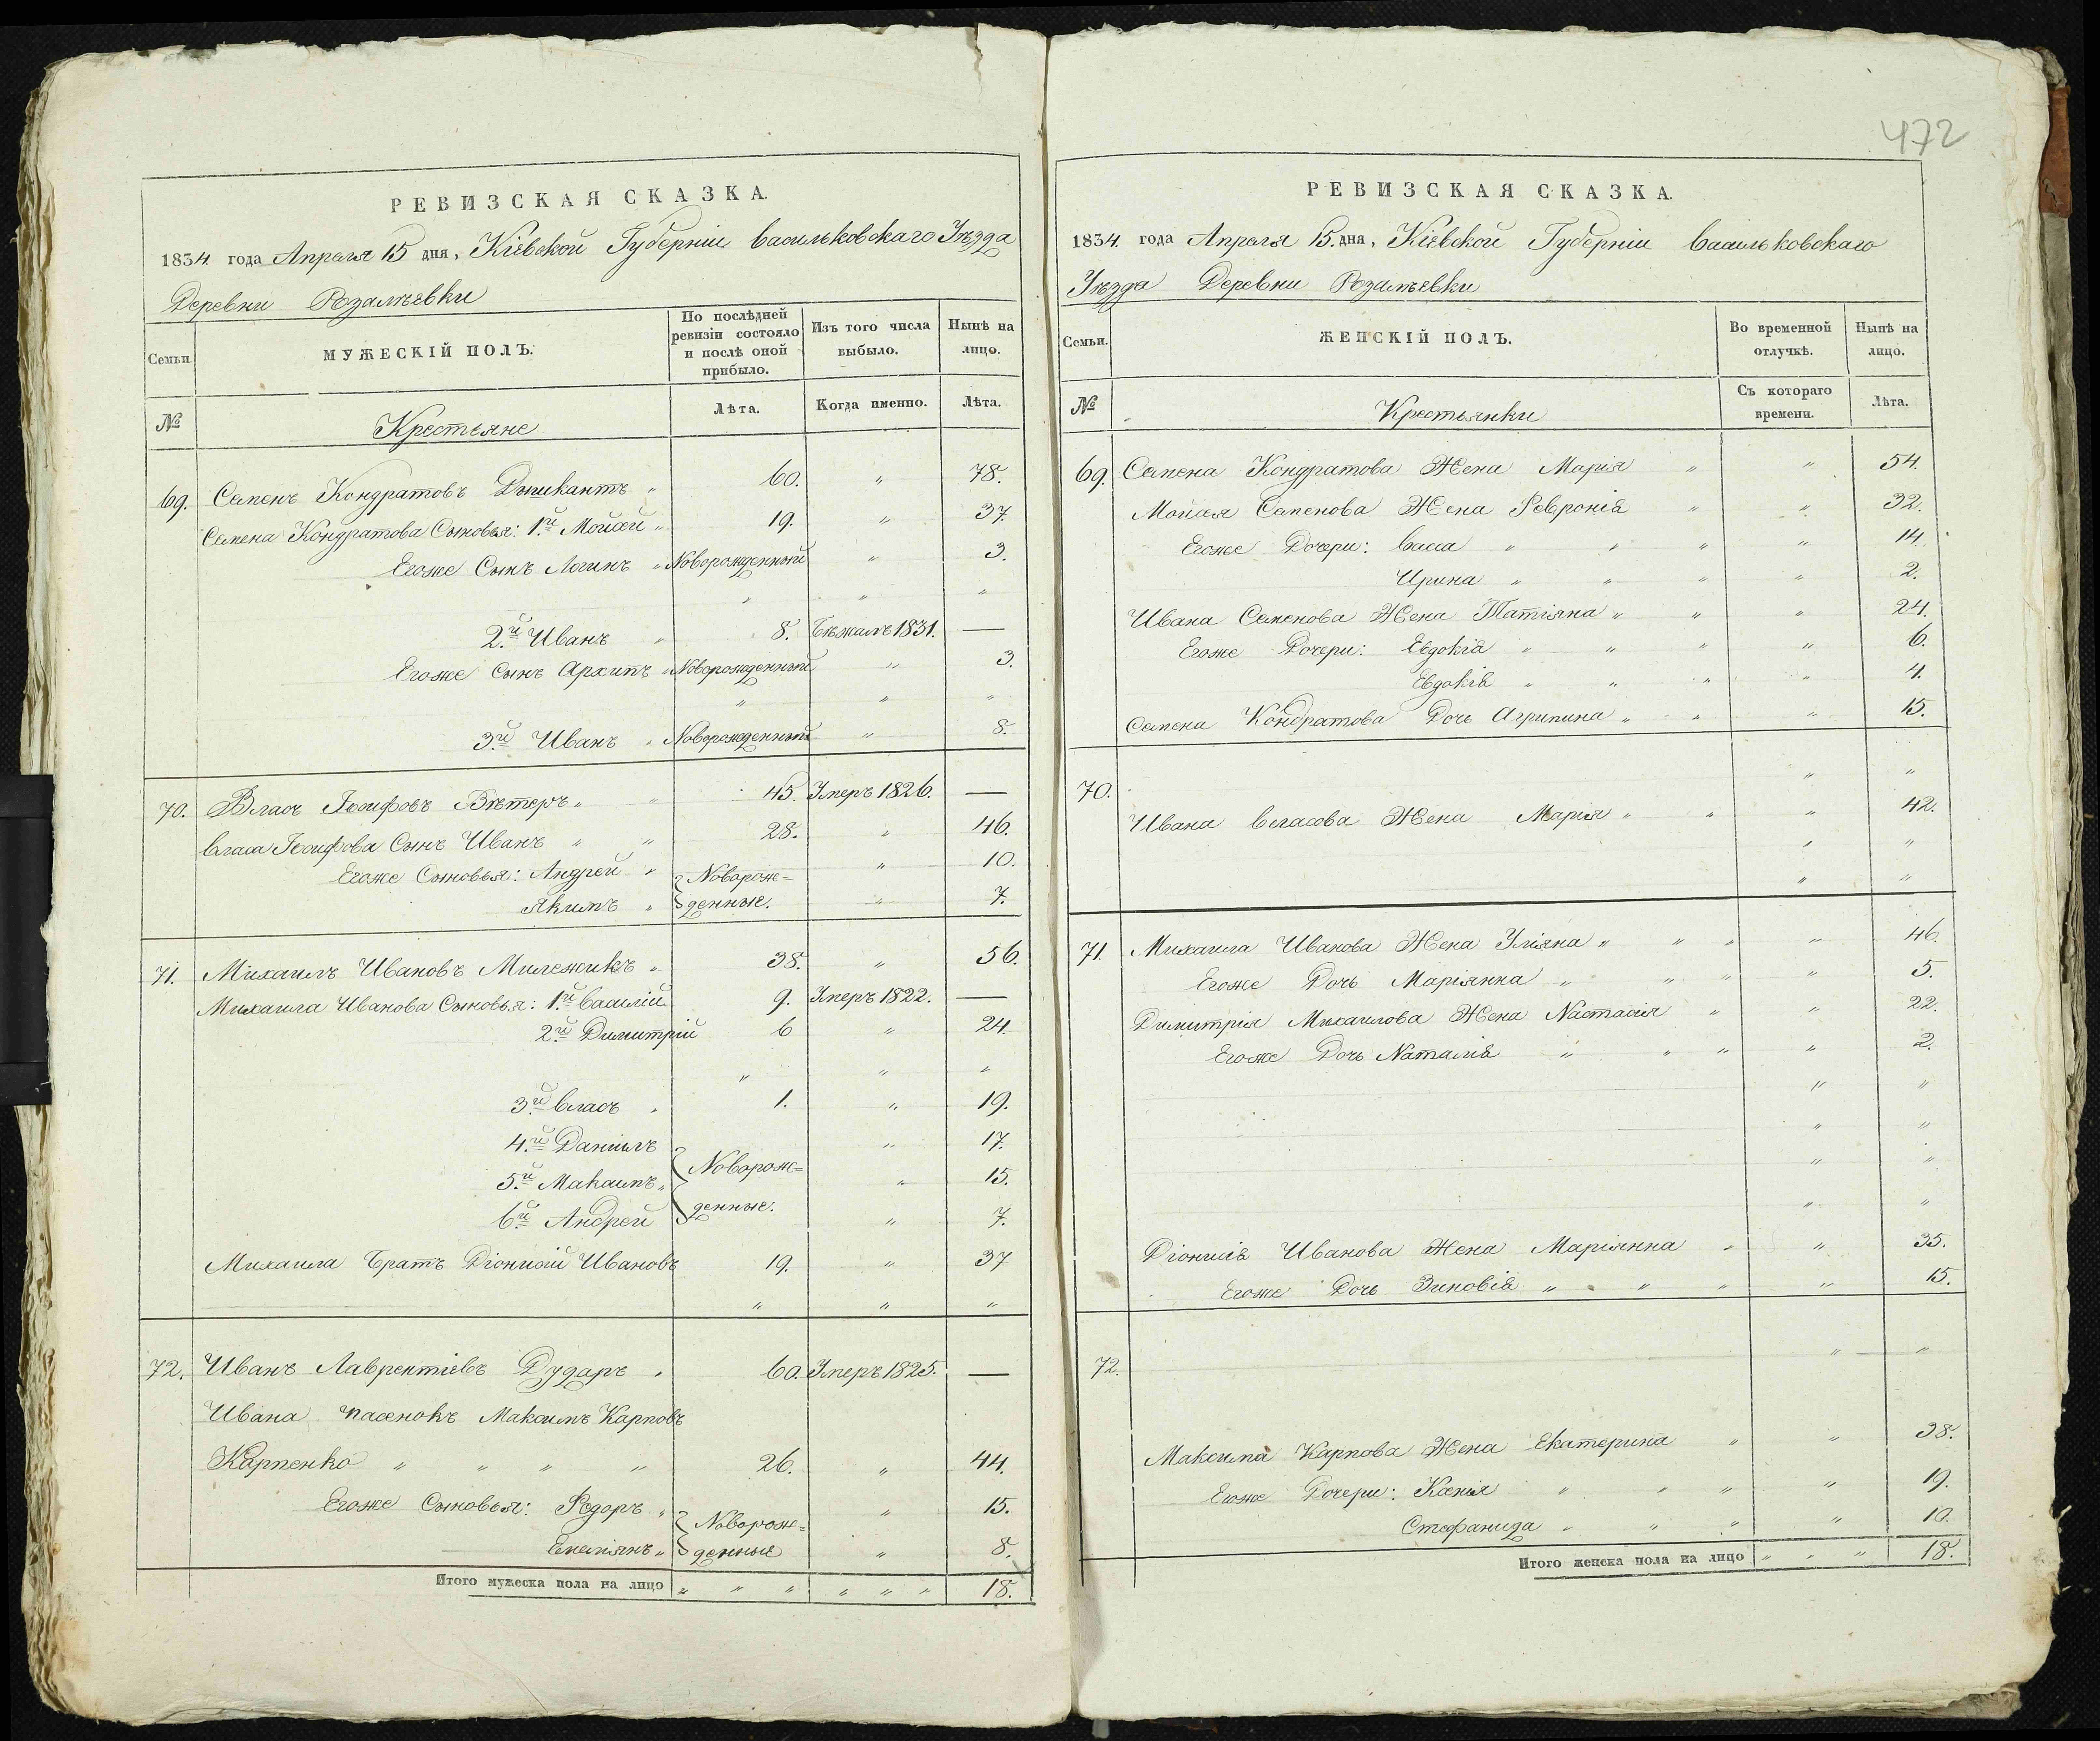 РЕВИЗСКАЯ СКАЗКА.
1834 года Апреля 15 дня, Кіевской Губерніи Васильковскаго Уѣзда
Деревни
Семьи.
МУЖЕСКІЙ ПОЛЪ.
По послѣдней ревизіи состояло и послѣ оной прибыло.
Изъ того числа выбыло.
Нынѣ на лицо.
№
Крестьяне
Лѣта.
Когда именно.
Лѣта.
69. Семенъ Кондратовъ " 60. " 78.
Семена Кондратова Сыновья: 1.й Мойсей " 19. " 37.
Егоже Сынъ Логинъ " Новорожденный " 3.
" " "
2.й Иванъ " 8. Бѣжалъ 1831. —
Егоже Сынъ Архипъ " Новорожденный " 3.
" " "
3.й Иванъ " Новорожденный " 8.
70. Власъ Іосифовъ Вѣтеръ " " 45. Умеръ 1826. —
Власа Іосифова Сынъ Иванъ " " 28. " 46.
Егоже Сыновья: Андрей " Новорож= " 10.
Якимъ " денные. " 7.
71. Михаилъ Ивановъ " 38. " 56.
Михаила Иванова Сыновья: 1.й Василій 9. Умеръ 1822. —
2.й Димитрій 6 " 24.
" " "
3.й Власъ " 1. " 19.
4.й Даніилъ " 17.
5.й Максимъ " Новорож= " 15.
6.й Андрей денные. " 7.
Михаила Братъ Діонисій Ивановъ 19. " 37
" " "
72. Иванъ Лаврентіевъ Дударъ " 60. Умеръ 1825. —
Ивана пасенокъ Максимъ Карповъ
Карпенко " " " " 26. " 44.
Егоже Сыновья: Ѳедоръ " Новорож= " 15.
Емеліянъ " денные " 8.
Итого мужеска пола на лицо " " " " " " 18.
472
РЕВИЗСКАЯ СКАЗКА.
1834. года Апреля 15. дня, Кіевской Губерніи Васильковскаго
Уѣзда Деревни
Семьи.
ЖЕНСКІЙ ПОЛЪ.
Во временной отлучкѣ.
Нынѣ на лицо.
№
Крестьянки
Съ котораго времени.
Лѣта.
69. Семена Кондратова Жена Марія " " 54.
Мойсея Семенова Жена Ѳевронія " " 32.
Егоже Дочери: Васса " " " " 14.
Ирина " " " " 2.
Ивана Семенова Жена Татіяна " " " 24.
Егоже Дочери: Евдокія " " " " 6.
Евдокія " " " " 4.
Семена Кондратова Дочь Агрипина " " " 15.
70. " "
Ивана Власова Жена Марія " " " 42.
" "
" "
71. Михаила Иванова Жена Уліяна " " " " 46.
Егоже Дочь Маріянна " " " " 5.
Димитрія Михаилова Жена Настасія " " 22.
Егоже Дочь Наталія " " " " 2.
" "
" "
" "
" "
Діонисія Иванова Жена Маріянна " " 35.
Егоже Дочь Зиновія " " " " 15.
72. " "
Максима Карпова Жена Екатерина " " 38.
Егоже Дочери: Ксенія " " " " 19.
Стефанида " " " " 10.
Итого женска пола на лицо " " " 18.